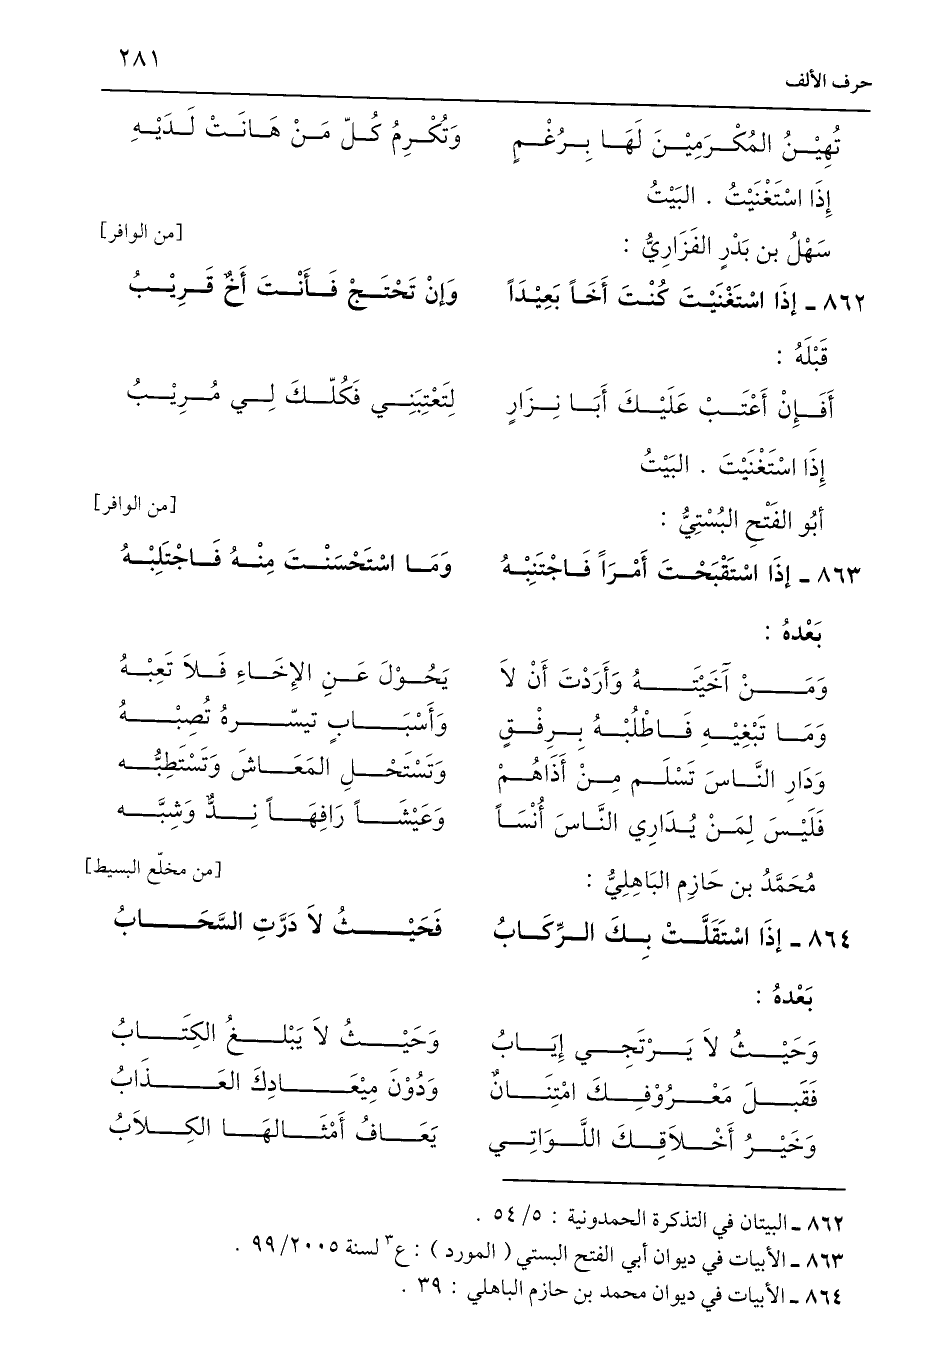 ٢٨١
حرف الألف
تُهِيْنُ المُكْرَمِيْنَ لَهَا بِرُغْمٍ وَتُكْرِمُ كُلّ مَنْ هَانَتْ لَدَيْهِ
إِذَا اسْتَغْنَيْتُ . البَيْتُ
سَهْلُ بن بَدْرٍ الفَزَارِيُّ : [من الوافر]
٨٦٢ ـ إِذَا اسْتَغْنَيْتَ كُنْتَ أَخَاً بَعِيْدَاً وَإِنْ تَحْتَجْ فَأَنْتَ أَخٌ قَرِيْبُ
قَبْلَهُ :
أَفَإِنْ أَعْتَبْ عَلَيْكَ أَبَا نِزَارٍ لِتَعْتِبَنِي فَكُلّكَ لِي مُرِيْبُ
إِذَا اسْتَغْنَيْتَ . البَيْتُ
أَبُو الفَتْحِ البُسْتِيُّ : [من الوافر]
٨٦٣ ـ إِذَا اسْتَقْبَحْتَ أَمْرَاً فَاجْتَنِبْهُ وَمَا اسْتَحْسَنْتَ مِنْهُ فَاجْتَلِبْهُ
بَعْدهُ :
وَمَنْ آخَيْتَهُ وَأَرَدْتَ أَنْ لاَ يَحُوْلَ عَنِ الإِخَاءِ فَلاَ تَعِبْهُ
وَمَا تَبْغِيْهِ فَاطْلُبْهُ بِرِفْقٍ وَأَسْبَابٍ تيسّرهُ تُصِبْهُ
وَدَارِ النَّاسَ تَسْلَم مِنْ أَذَاهُمْ وَتَسْتَحْلِ المَعَاشَ وَتَسْتَطِبُّه
فَلَيْسَ لِمَنْ يُدَارِي النَّاسَ أُنْسَاً وَعَيْشَاً رَافِهَاً نِدٌّ وَشِبَّه
مُحَمَّدُ بن حَازِم البَاهِلِيُّ : [من مخلّع البسيط]
٨٦٤ ـ إِذَا اسْتَقَلَّتْ بِكَ الرِّكَابُ فَحَيْثُ لاَ دَرَّتِ السَّحَابُ
بَعْدهُ :
وَحَيْثُ لاَ يَرْتَجِي إِيَابُ وَحَيْثُ لاَ يَبْلغُ الكِتَابُ
فَقَبلَ مَعْرُوْفِكَ امْتِنَانٌ وَدُوْنَ مِيْعَادِكَ العَذَابُ
وَخَيْرُ أَخْلاَقِكَ اللَّوَاتِي يَعَافُ أَمْثَالهَا الكِلاَبُ
٨٦٢ ـ البيتان في التذكرة الحمدونية : ٥/ ٥٤ .
٨٦٣ ـ الأبيات في ديوان أبي الفتح البستي ( المورد ) : ع٣ لسنة ٢٠٠٥/ ٩٩ .
٨٦٤ ـ الأبيات في ديوان محمد بن حازم الباهلي : ٣٩ .